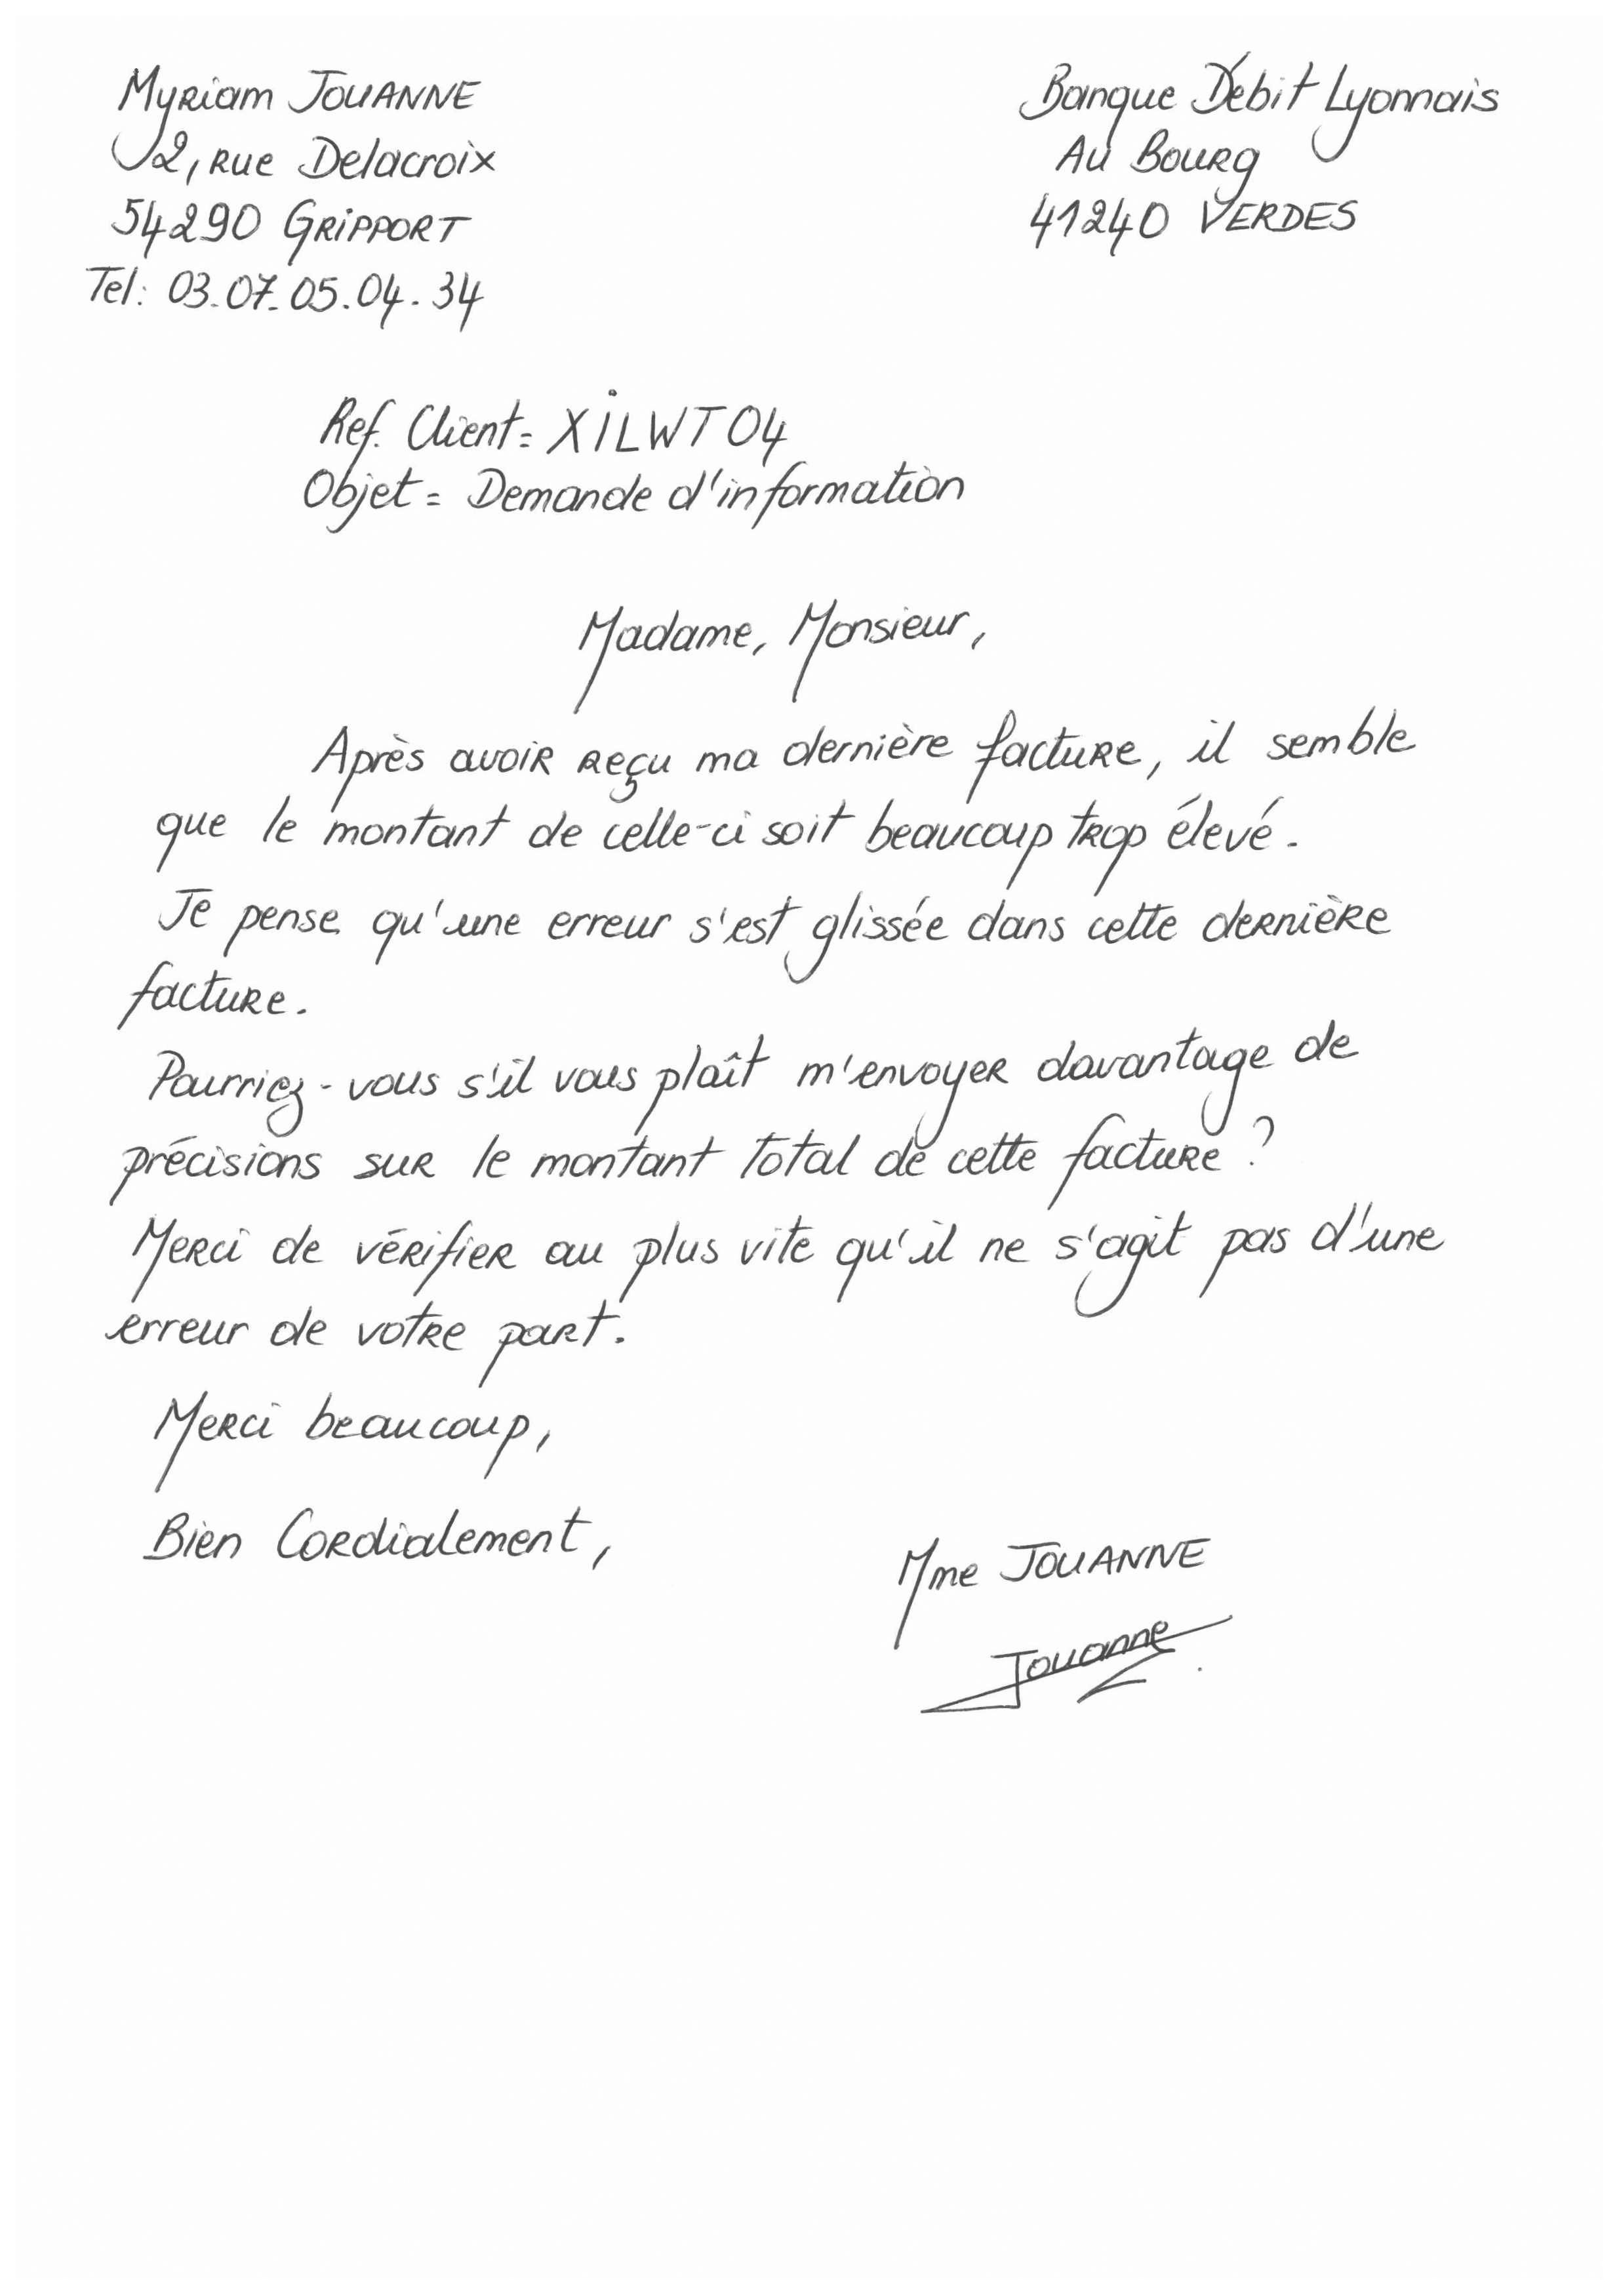 Myriam JOUANNE
2, rue Delacroix
54290 GRIPPORT
Tel: 03.07.05.04.34
Banque Débit Lyonnais
Au Bourg
41240 VERDES
Ref. Client = XILWT04
Objet = Demande d'information
Madame, Monsieur,
Après avoir reçu ma dernière facture, il semble
que le montant de celle-ci soit beaucoup trop élevé.
Je pense qu'une erreur s'est glissée dans cette dernière
facture.
Pourriez-vous s'il vous plaît m'envoyer davantage de
précisions sur le montant total de cette facture ?
Merci de vérifier au plus vite qu'il ne s'agit pas d'une
erreur de votre part.
Merci beaucoup,
Bien Cordialement,
Mme JOUANNE
Jouanne